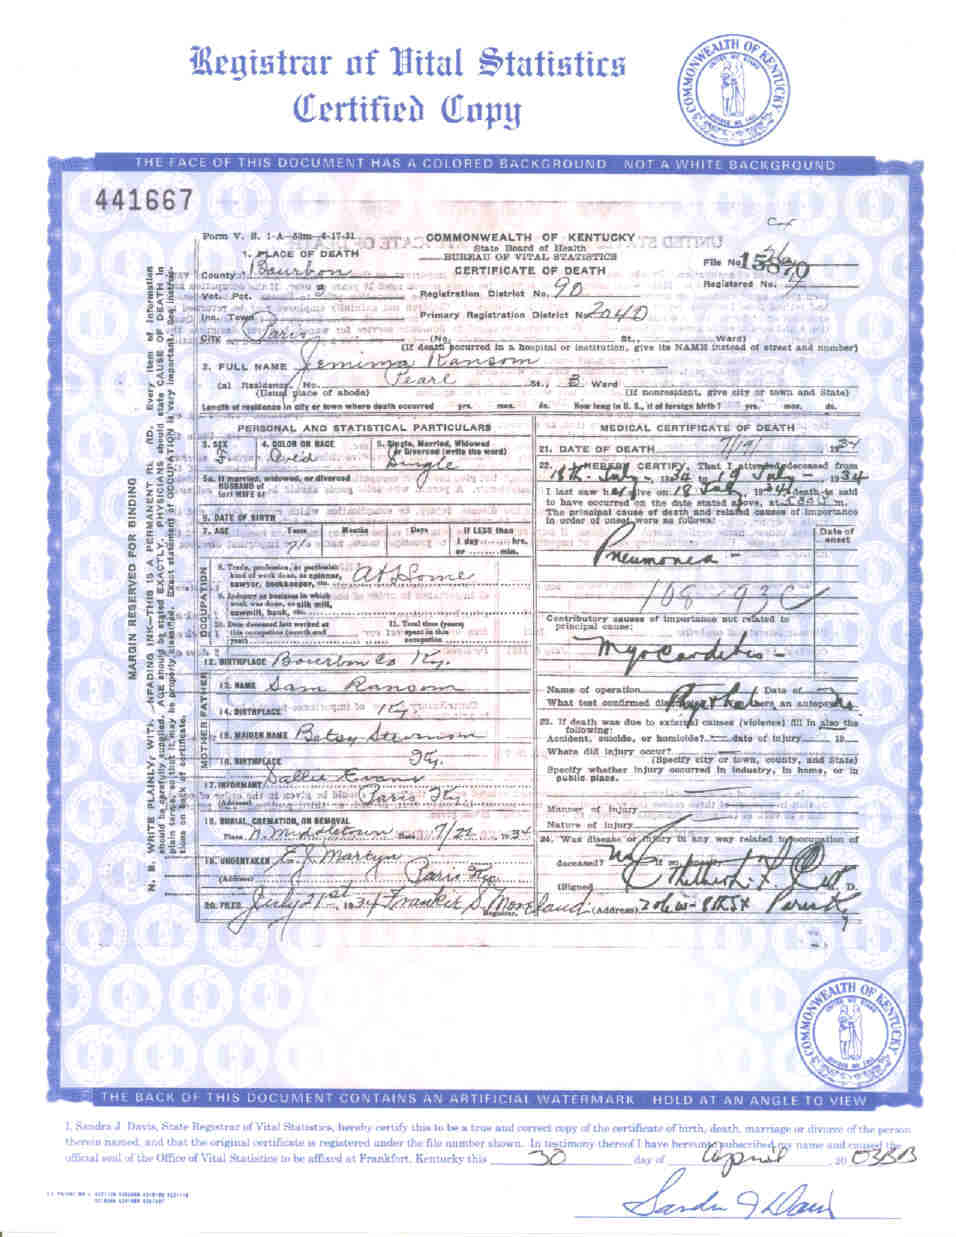 Registrar of Vital Statistics
Certified Copy
COMMONWEALTH OF KENTUCKY
THE FACE OF THIS DOCUMENT HAS A COLORED BACKGROUND NOT A WHITE BACKGROUND
441667
Form V. S. 1-A
COMMONWEALTH OF KENTUCKY
State Board of Health
BUREAU OF VITAL STATISTICS
CERTIFICATE OF DEATH
1. PLACE OF DEATH
County Bourbon
File No.
Registered No.
Vot. Pct. 3
Registration District No. 90
Inc. Town
Primary Registration District No. 2040
City Paris
(No. St., Ward)
(If death occurred in a hospital or institution, give its NAME instead of street and number)
2. FULL NAME Jemima Ransom
(a) Residence. No. Pearl St., Ward
(Usual place of abode) (If nonresident, give city or town and State)
Length of residence in city or town where death occurred yrs. mos. ds. How long in U. S., if of foreign birth? yrs. mos. ds.
PERSONAL AND STATISTICAL PARTICULARS
3. SEX
4. COLOR OR RACE
5. Single, Married, Widowed
or Divorced (write the word)
Single
5a. If married, widowed, or divorced
HUSBAND of
(or) WIFE of
6. DATE OF BIRTH
7. AGE Years Months Days If LESS than
1 day hrs.
or min.
8. Trade, profession, or particular
kind of work done, as spinner,
sawyer, bookkeeper, etc.
At Home
9. Industry or business in which
work was done, as silk mill,
sawmill, bank, etc.
10. Date deceased last worked at
this occupation (month and
year)
11. Total time (years)
spent in this
occupation
12. BIRTHPLACE Bourbon Co Ky.
13. NAME Sam Ransom
14. BIRTHPLACE Ky.
15. MAIDEN NAME Betsy
16. BIRTHPLACE Ky.
17. INFORMANT Sallie Evans
(Address) Paris Ky.
18. BURIAL, CREMATION, OR REMOVAL
Place N. Middletown Date 7/22 1934
19. UNDERTAKER
(Address) Paris Ky.
20. FILED July 21st, 1934
Registrar.
OCCUPATION
FATHER
MOTHER
MEDICAL CERTIFICATE OF DEATH
21. DATE OF DEATH 7/19/ 1934
22. I HEREBY CERTIFY, That I attended deceased from
18th July 1934 to 19 July 1934
I last saw h alive on 18 July, 1934 death is said
to have occurred on the date stated above, at m.
The principal cause of death and related causes of importance
in order of onset were as follows:
Date of
onset
Pneumonea
108-93C
Contributory causes of importance not related to
principal cause:
Myocardites
Name of operation Date of
What test confirmed Was there an autopsy? No
23. If death was due to external causes (violence) fill in also the
following:
Accident, suicide, or homicide? date of injury 19
Where did injury occur?
(Specify city or town, county, and State)
Specify whether injury occurred in industry, in home, or in
public place.
Manner of Injury
Nature of Injury
24. Was disease or injury in any way related to occupation of
deceased? No If so,
(Signed) M. D.
(Address) Paris Ky
MARGIN RESERVED FOR BINDING
N. B. WRITE PLAINLY, WITH UNFADING INK—THIS IS A PERMANENT RECORD. Every item of information
should be carefully supplied. AGE should be stated EXACTLY. PHYSICIANS should state CAUSE OF DEATH in
plain terms, so that it may be properly classified. Exact statement of OCCUPATION is very important. See instruc-
tions on back of certificate.
COMMONWEALTH OF KENTUCKY
THE BACK OF THIS DOCUMENT CONTAINS AN ARTIFICIAL WATERMARK HOLD AT AN ANGLE TO VIEW
I, Sandra J. Davis, State Registrar of Vital Statistics, hereby certify this to be a true and correct copy of the certificate of birth, death, marriage or divorce of the person
therein named, and that the original certificate is registered under the file number shown. In testimony thereof I have hereunto subscribed my name and caused the
official seal of the Office of Vital Statistics to be affixed at Frankfort, Kentucky this 30 day of April, 20 03
Sandra J Davis